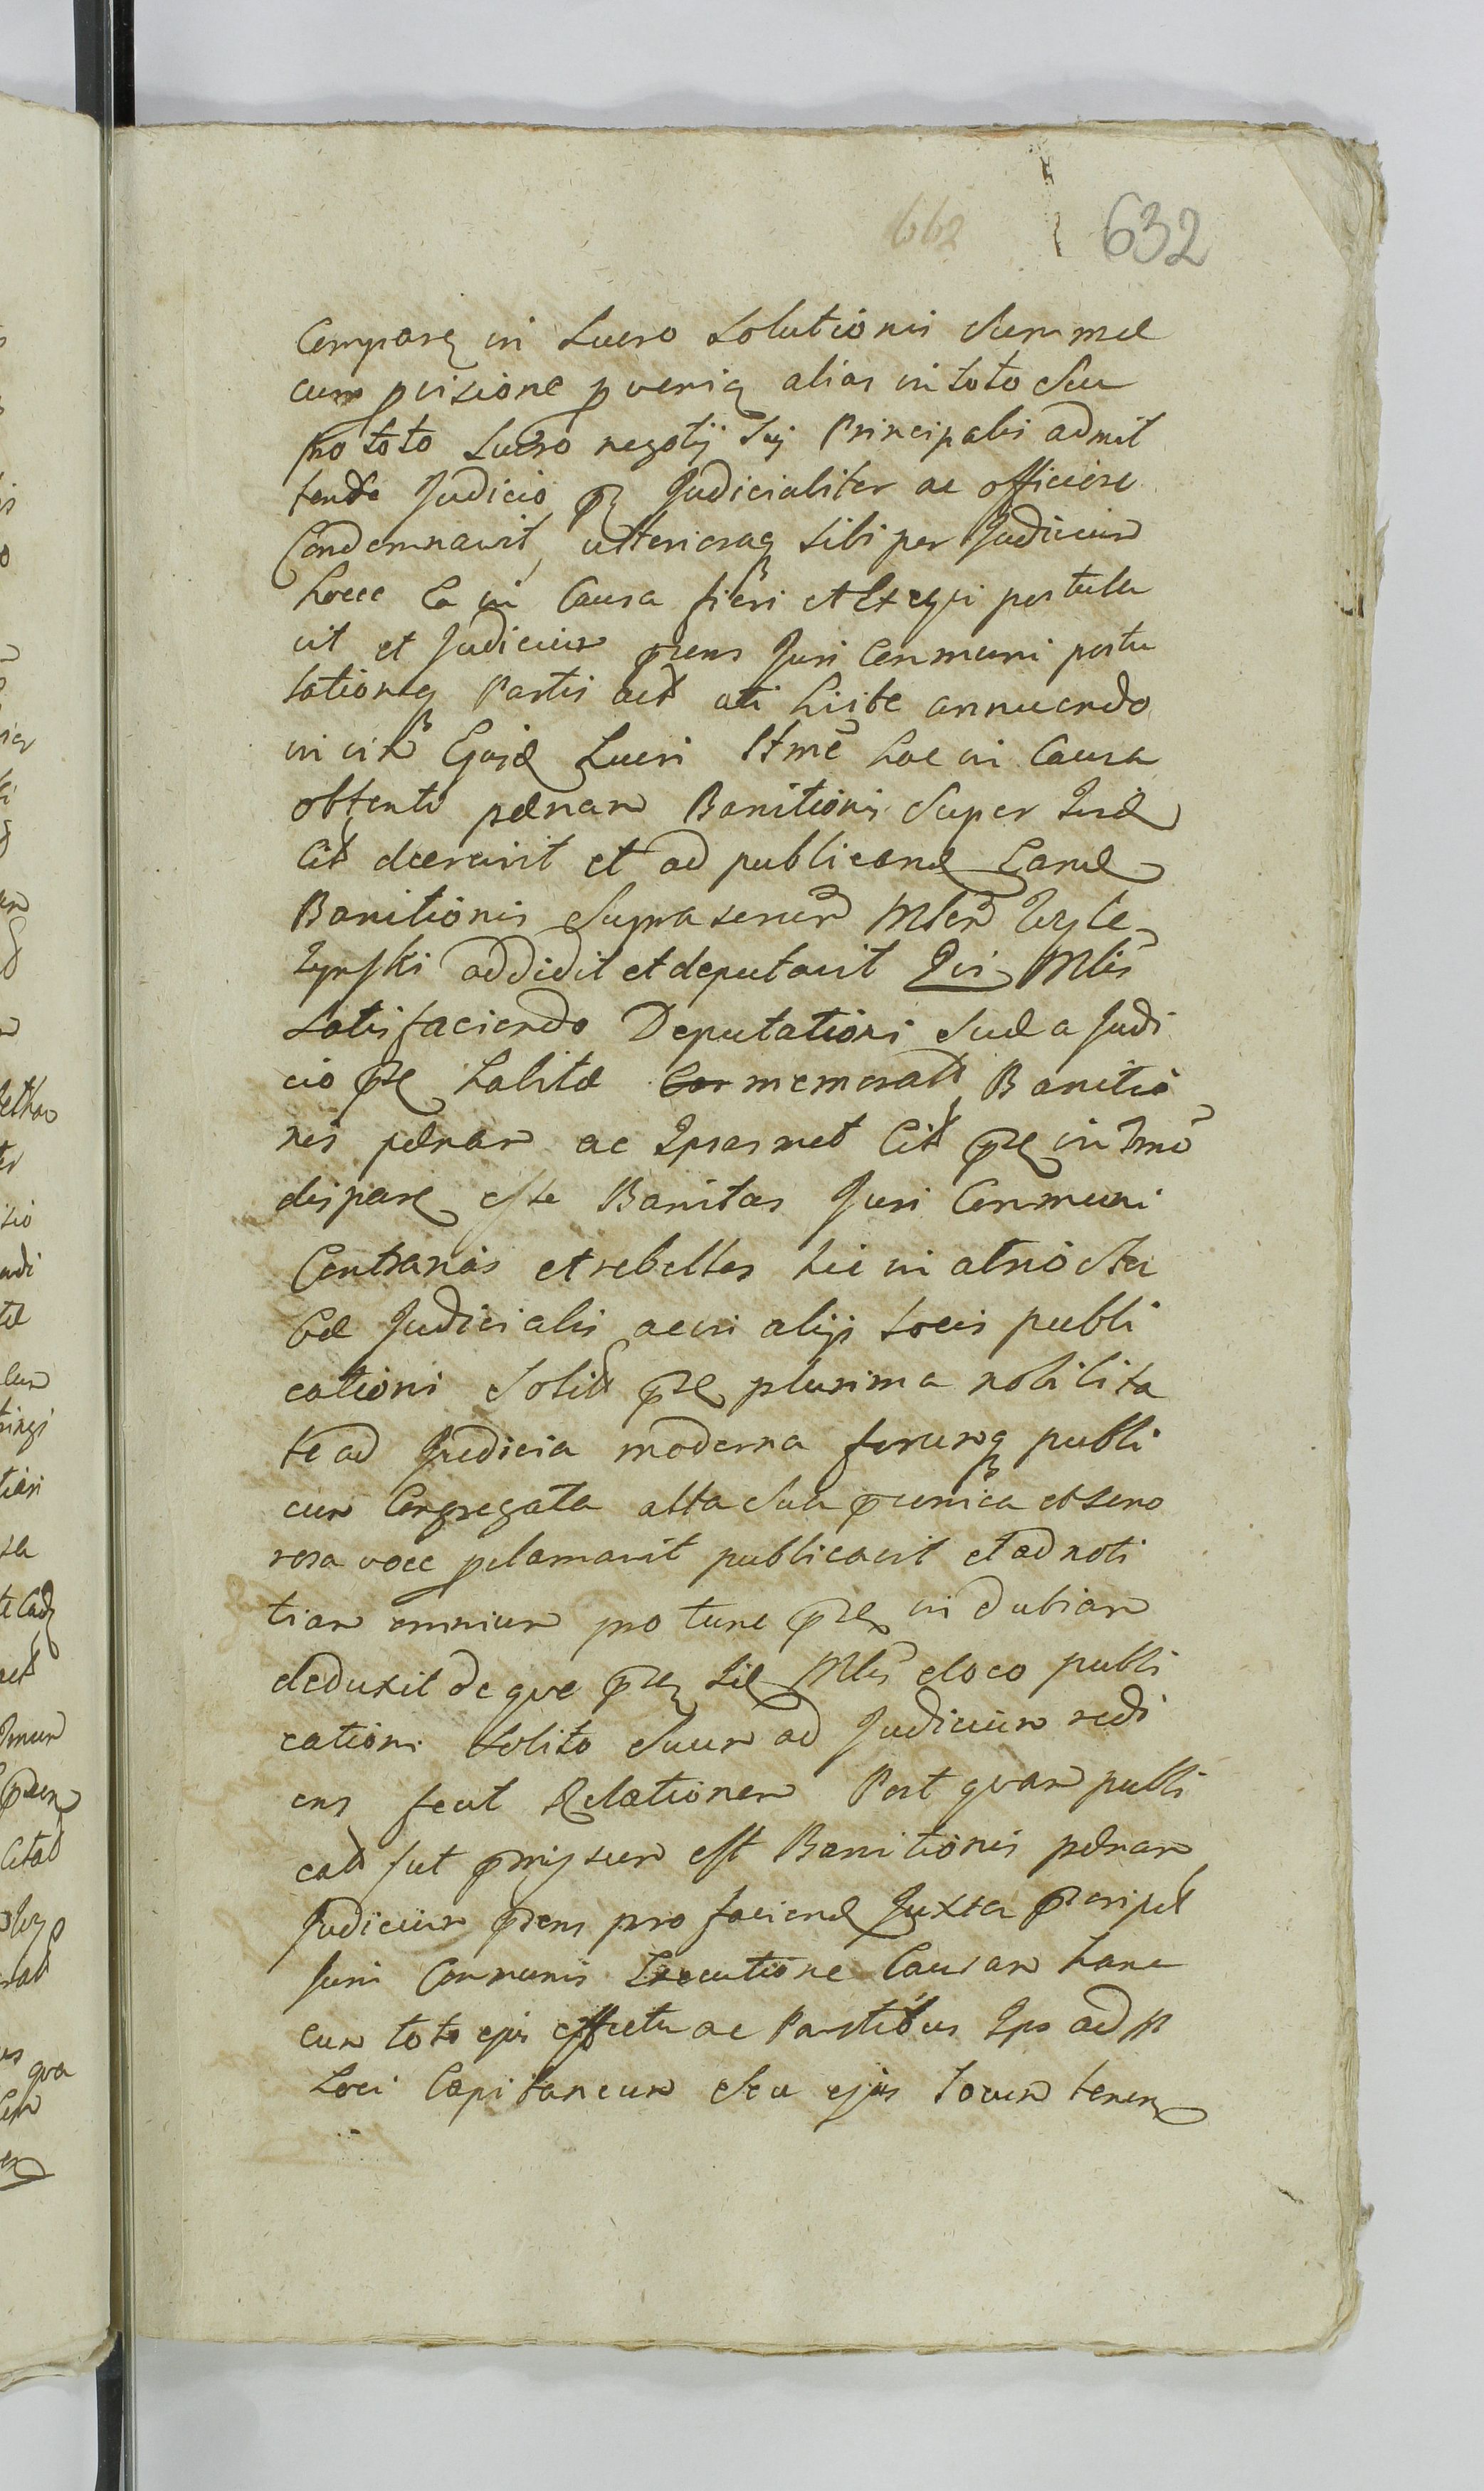 662 632
Comparen in Lucro Solutionis Summæ
cum pvisione pveniẽ alias in toto Seu
pro toto Lucro negotij Sui Principalis admit
tendo Judicio pñ Judicialiter ac officiose
Condemnavit, ulterioraq sibi per Judicium
hocce Ea in Causa fieri et Exequi postula
vit et Judicium pñens Juri Communi postu
lationiq Partis act uti Justæ annuendo
in vim Ejusd Lucri Itmẽ hac in Causa
obtenti pænam Banitionis Super Iisd
Citt decrevit et ad publicand Eand
Banitionis Suprascriptam Mlem
addidit et deputavit Qui Mlis
Satisfaciendo Deputationi Suæ a Judi
cio pñ habitæ memoratt Banitio
nis pænam ac Ipsasmet Citt pñ in Imo
dispare esse Banitas Juri Communi
Contrarias et rebelles hic in atrio Stu
bæ Judicialis ac in alijs locis publi
cationi Solitt pñ plurima nobilita
te ad Judicia moderna forumq publi
cum Congregata alta Sua pconica et sono
rosa voce pclamavit publicavit et ad noti
tiam omnium pro tunc pñ indubiam
deduxit de quo pñ Sic Mlis e loco publi
cationi Solito Suum ad Judicium redi
ens fecit Relationem Post quam publi
catt fut pmissum est Banitionis pænam
Judicium pñens pro faciend Juxta pscript
Juris Communis Executione Causam hanc
cum toto ejus effectu ac Partibus Ips ad M
Loci Capitaneum Seu ejus locum tenen